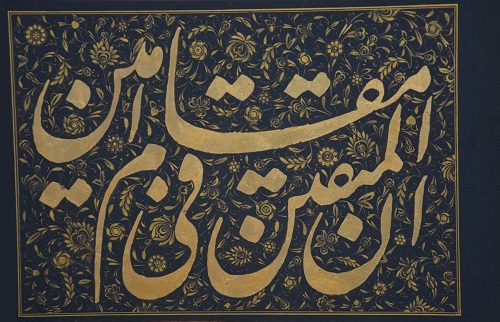 ان المتقین فی مقام امین